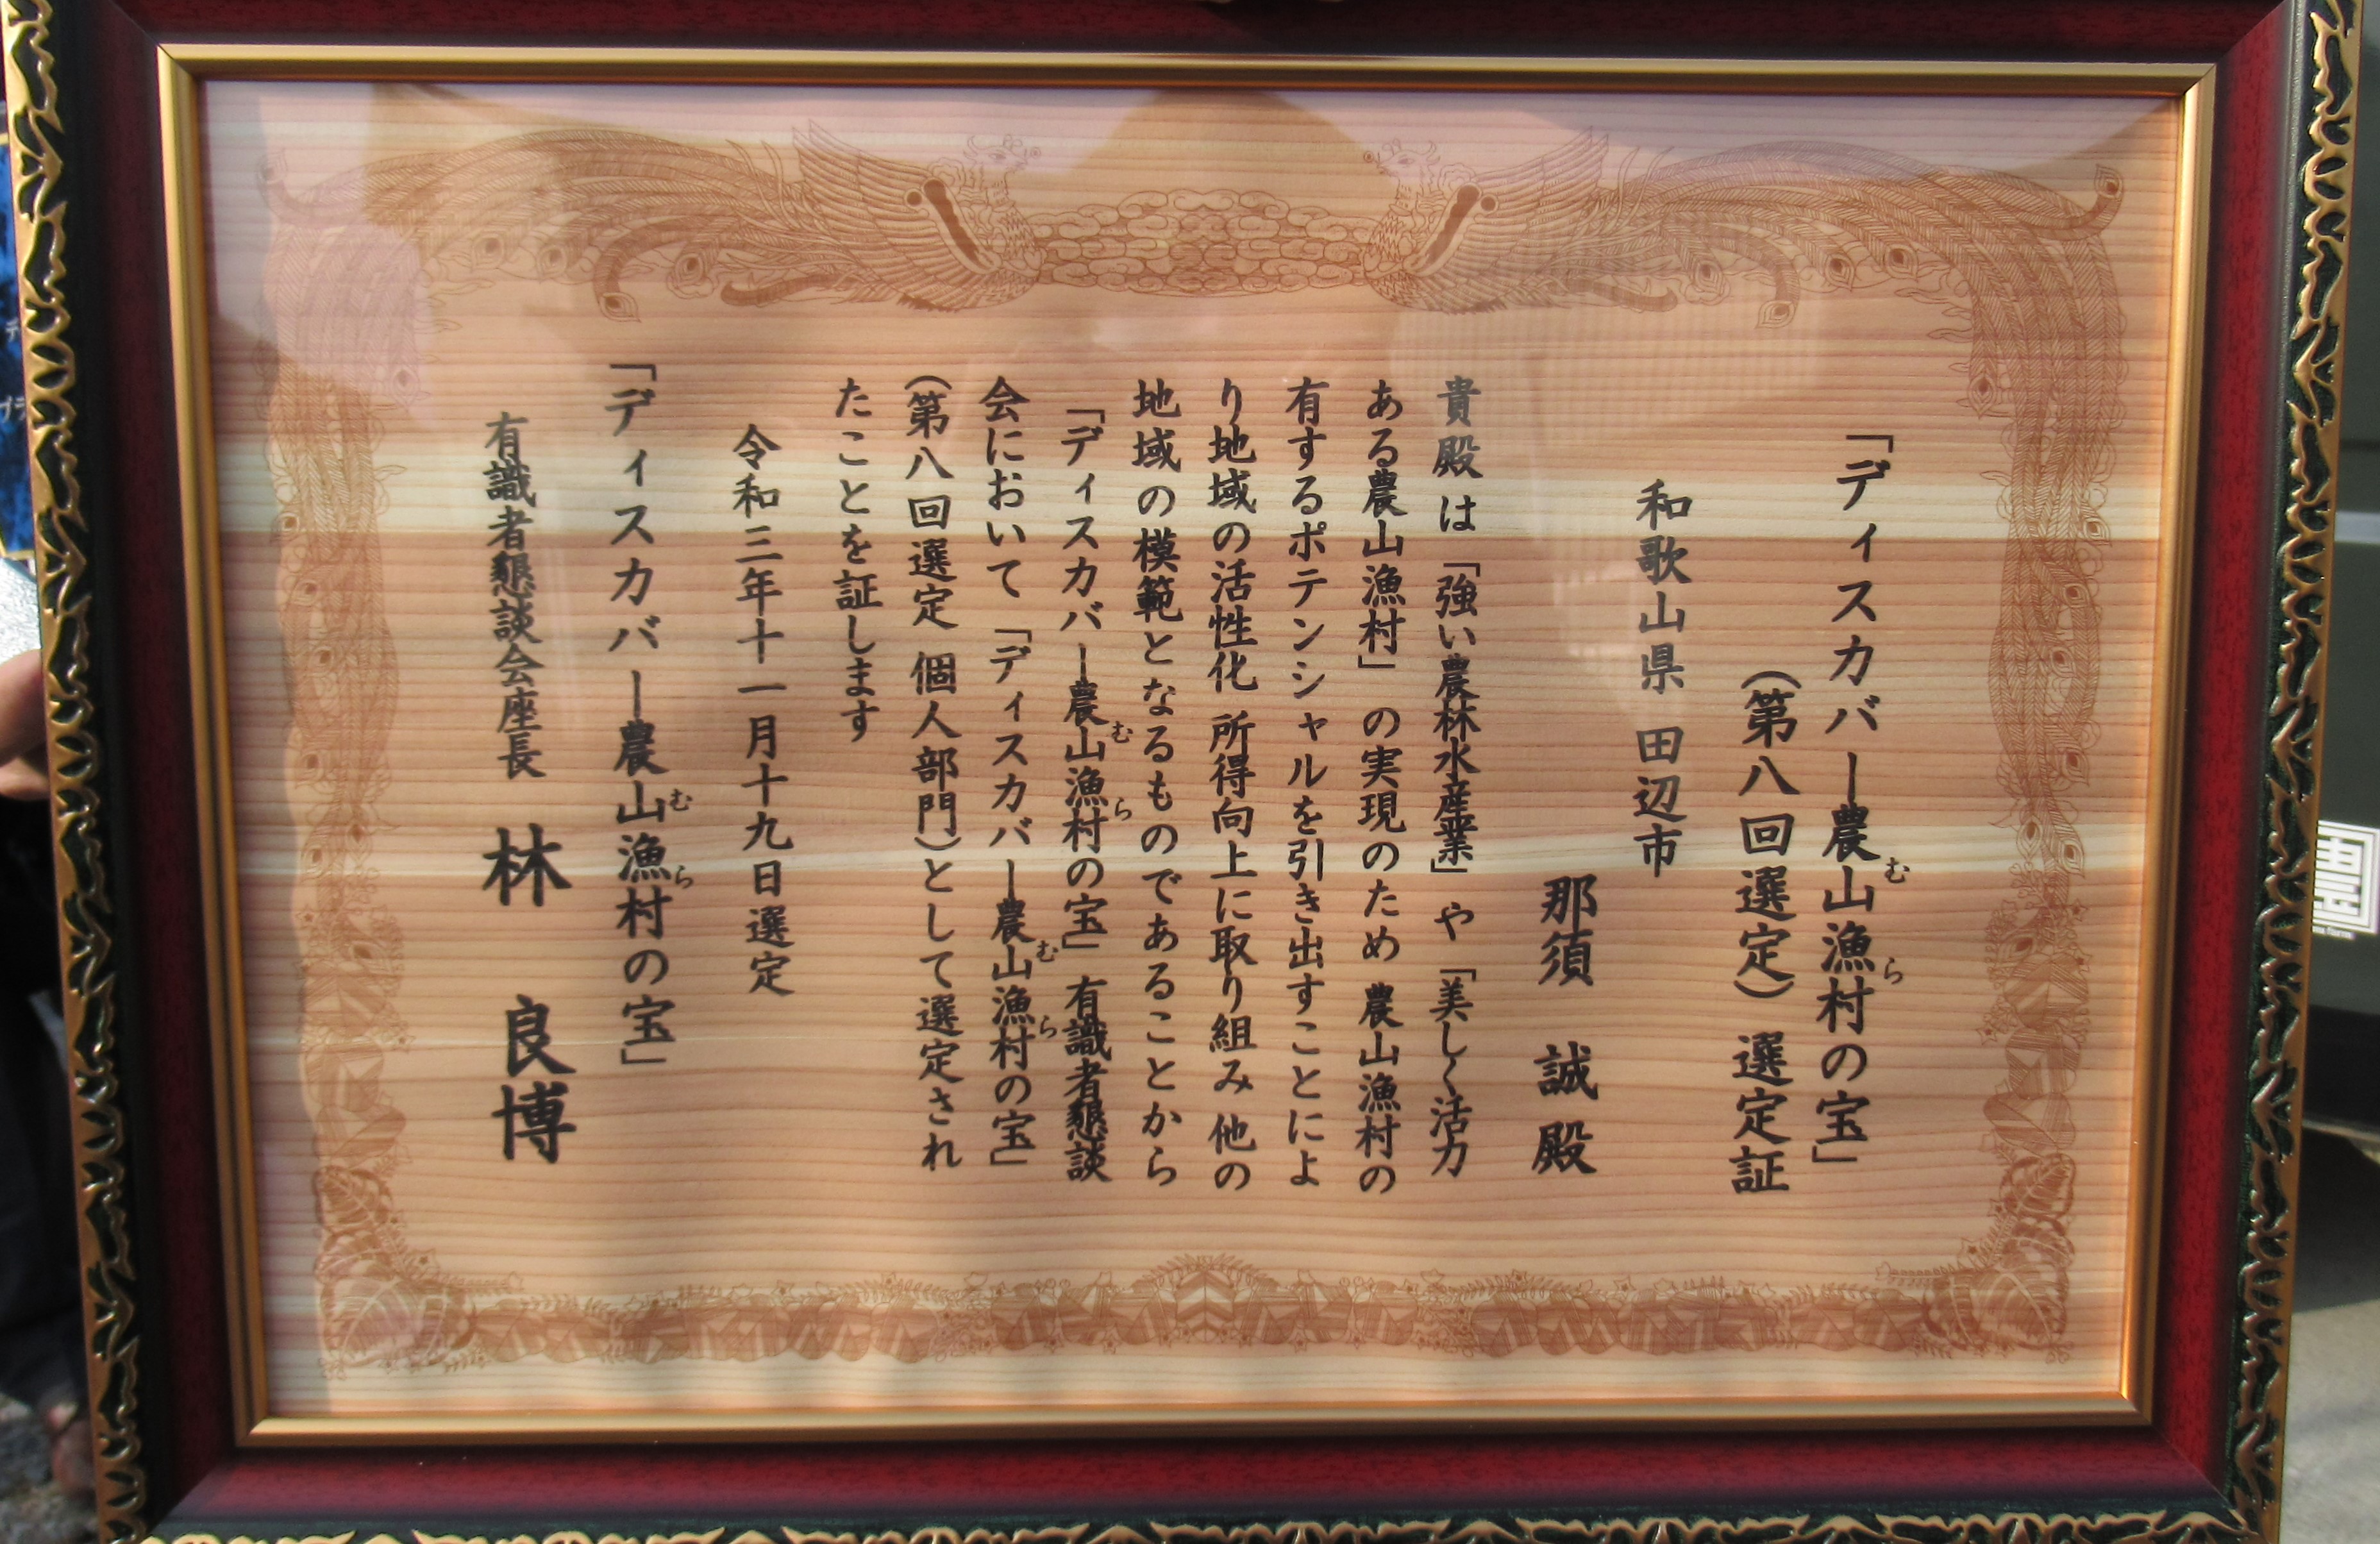 「ディスカバー農山漁村の宝」
むら
(第八回選定)選定証
和歌山県 田辺市
那須 誠 殿
貴殿は「強い農林水産業」や「美しく活力
ある農山漁村」の実現のため 農山漁村の
有するポテンシャルを引き出すことによ
り地域の活性化 所得向上に取り組み 他の
地域の模範となるものであることから
「ディスカバー農山漁村の宝」有識者懇談
むら
会において「ディスカバー農山漁村の宝」
むら
(第八回選定 個人部門)として選定され
たことを証します
令和三年十一月十九日選定
「ディスカバー農山漁村の宝」
むら
有識者懇談会座長 林 良博